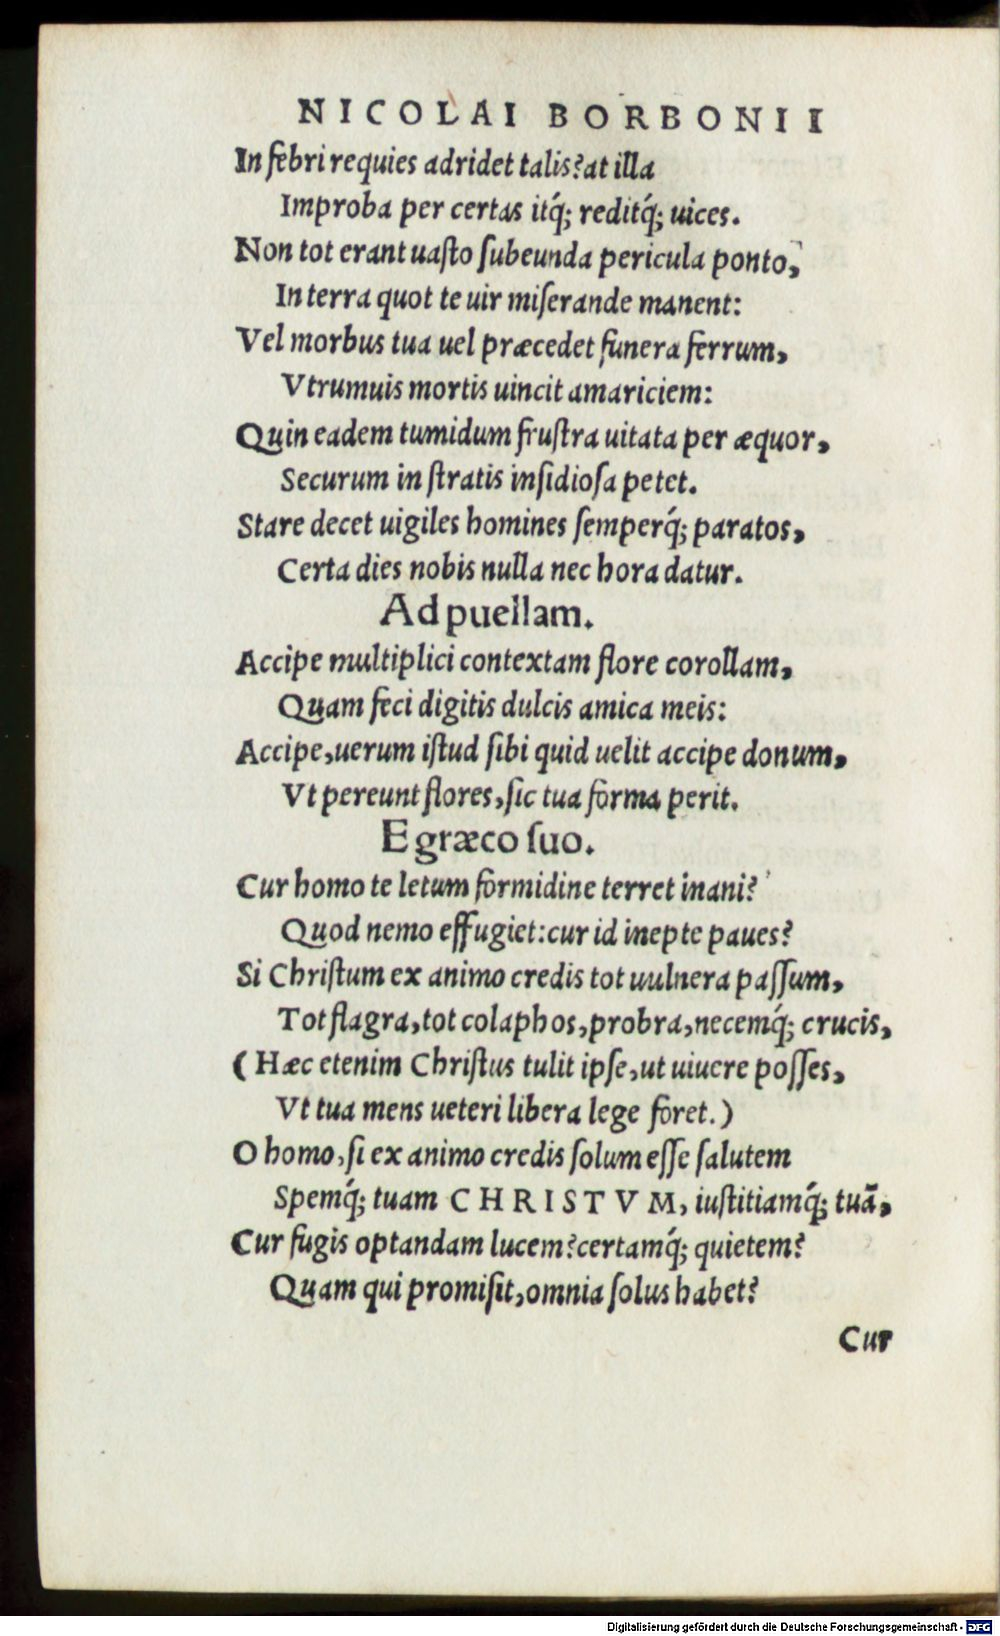 NICOLAI BORBONII
In febri requies adridet talis? at illa
Improba per certas itq́; reditq́; uices.
Non tot erant uasto subeunda pericula ponto,
In terra quot te uir miserande manent:
Vel morbus tua uel præcedet funera ferrum,
Vtrumuis mortis uincit amariciem:
Quin eadem tumidum frustra uitata per æquor,
Securum in stratis insidiosa petet.
Stare decet uigiles homines semperq́; paratos,
Certa dies nobis nulla nec hora datur.
Ad puellam.
Accipe multiplici contextam flore corollam,
Quam feci digitis dulcis amica meis:
Accipe, uerum istud sibi quid uelit accipe donum,
Vt pereunt flores, sic tua forma perit.
E græco suo.
Cur homo te letum formidine terret inani?
Quod nemo effugiet: cur id inepte paues?
Si Christum ex animo credis tot uulnera passum,
Tot flagra, tot colaphos, probra, necemq́; crucis,
(Hæc etenim Christus tulit ipse, ut uiuere posses,
Vt tua mens ueteri libera lege foret.)
O homo, si ex animo credis solum esse salutem
Spemq́; tuam CHRISTVM, iustitiamq́; tuã,
Cur fugis optandam lucem? certamq́; quietem?
Quam qui promisit, omnia solus habet?
Cur
Digitalisierung gefördert durch die Deutsche Forschungsgemeinschaft - DFG